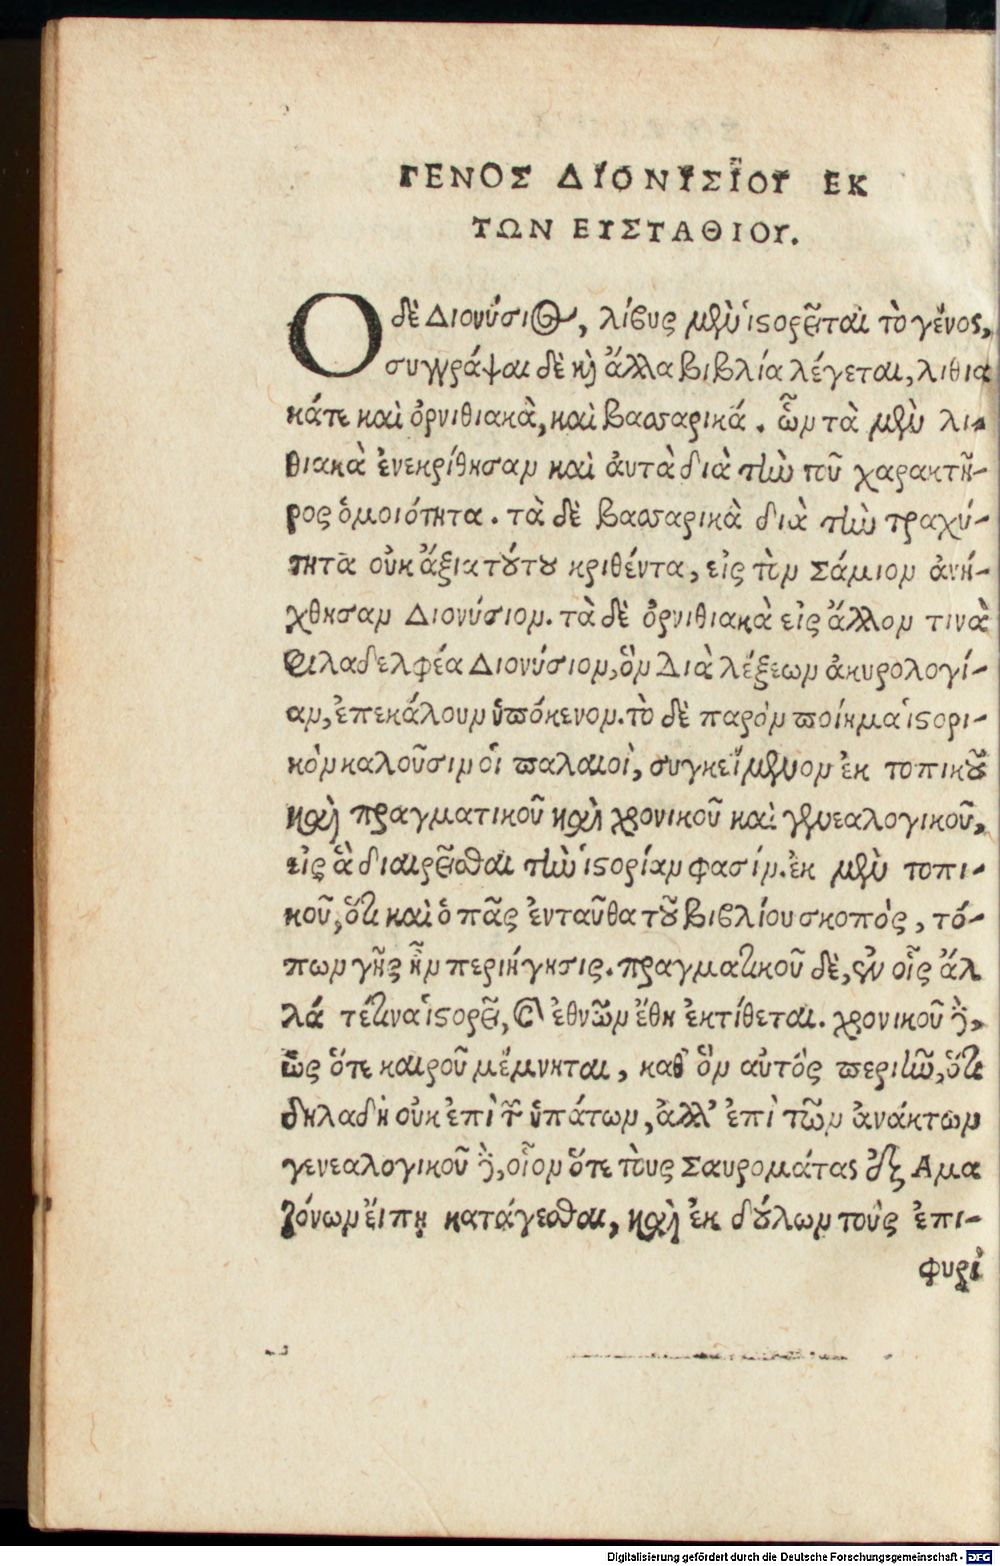 ΓΕΝΟΣ ΔΙΟΝΥΣΙΟΥ ΕΚ
ΤΩΝ ΕΥΣΤΑΘΙΟΥ.
Ο δὲ Διονύσιος, λίβυς μὲν ἱστορεῖται τὸ γένος,
συγγράψαι δὲ κὶ ἄλλα βιβλία λέγεται, λιθια
κάτε καὶ ὀρνιθιακὰ, καὶ βασσαρικά. ὧν τὰ μὲν λι-
θιακὰ ἐνεκρίθησαν καὶ ἀυτὰ διὰ τὴν τοῦ χαρακτῆ-
ρος ὁμοιότητα. τὰ δὲ βασσαρικὰ διὰ τὴν τραχύ-
τητα οὐκ ἄξια τούτου κριθέντα, εἰς τὸν Σάμιον ἀνή-
χθησαν Διονύσιον. τὰ δὲ ὀρνιθιακὰ εἰς ἄλλον τινὰ
Φιλαδελφέα Διονύσιον, ὃν διὰ λέξεων ἀκυρολογί-
αν, ἐπεκάλουν ὑπόκενον. τὸ δὲ παρὸν ποίημα ἱστορι-
κὸν καλοῦσιν οἱ παλαιοὶ, συγκείμενον ἐκ τοπικοῦ
καὶ πραγματικοῦ καὶ χρονικοῦ καὶ γενεαλογικοῦ,
εἰς ἃ διαιρεῖσθαι τὴν ἱστορίαν φασίν. ἐκ μὲν τοπι-
κοῦ, ὅτι καὶ ὁ πᾶς ἐνταῦθα τοῦ βιβλίου σκοπὸς, τό-
πων γῆς ἦν περιήγησις. πραγματικοῦ δὲ, ἐν οἷς ἄλ
λά τέ τινα ἱστορεῖ, καὶ ἐθνῶν ἔθη ἐκτίθεται. χρονικοῦ δὲ,
ὡς ὅτε καιροῦ μέμνηται, καθ' ὃν αὐτὸς περιῆν, ὅτι
δηλαδὴ οὐκ ἐπὶ τῶν ὑπάτων, ἀλλ' ἐπὶ τῶν ἀνάκτων
γενεαλογικοῦ δὲ, οἷον ὅτε τοὺς Σαυρομάτας ἐξ Αμα
ζόνων ἔιπῃ κατάγεσθαι, καὶ ἐκ δούλων τοὺς ἐπι-
φυρι
Digitalisierung gefördert durch die Deutsche Forschungsgemeinschaft - DFG